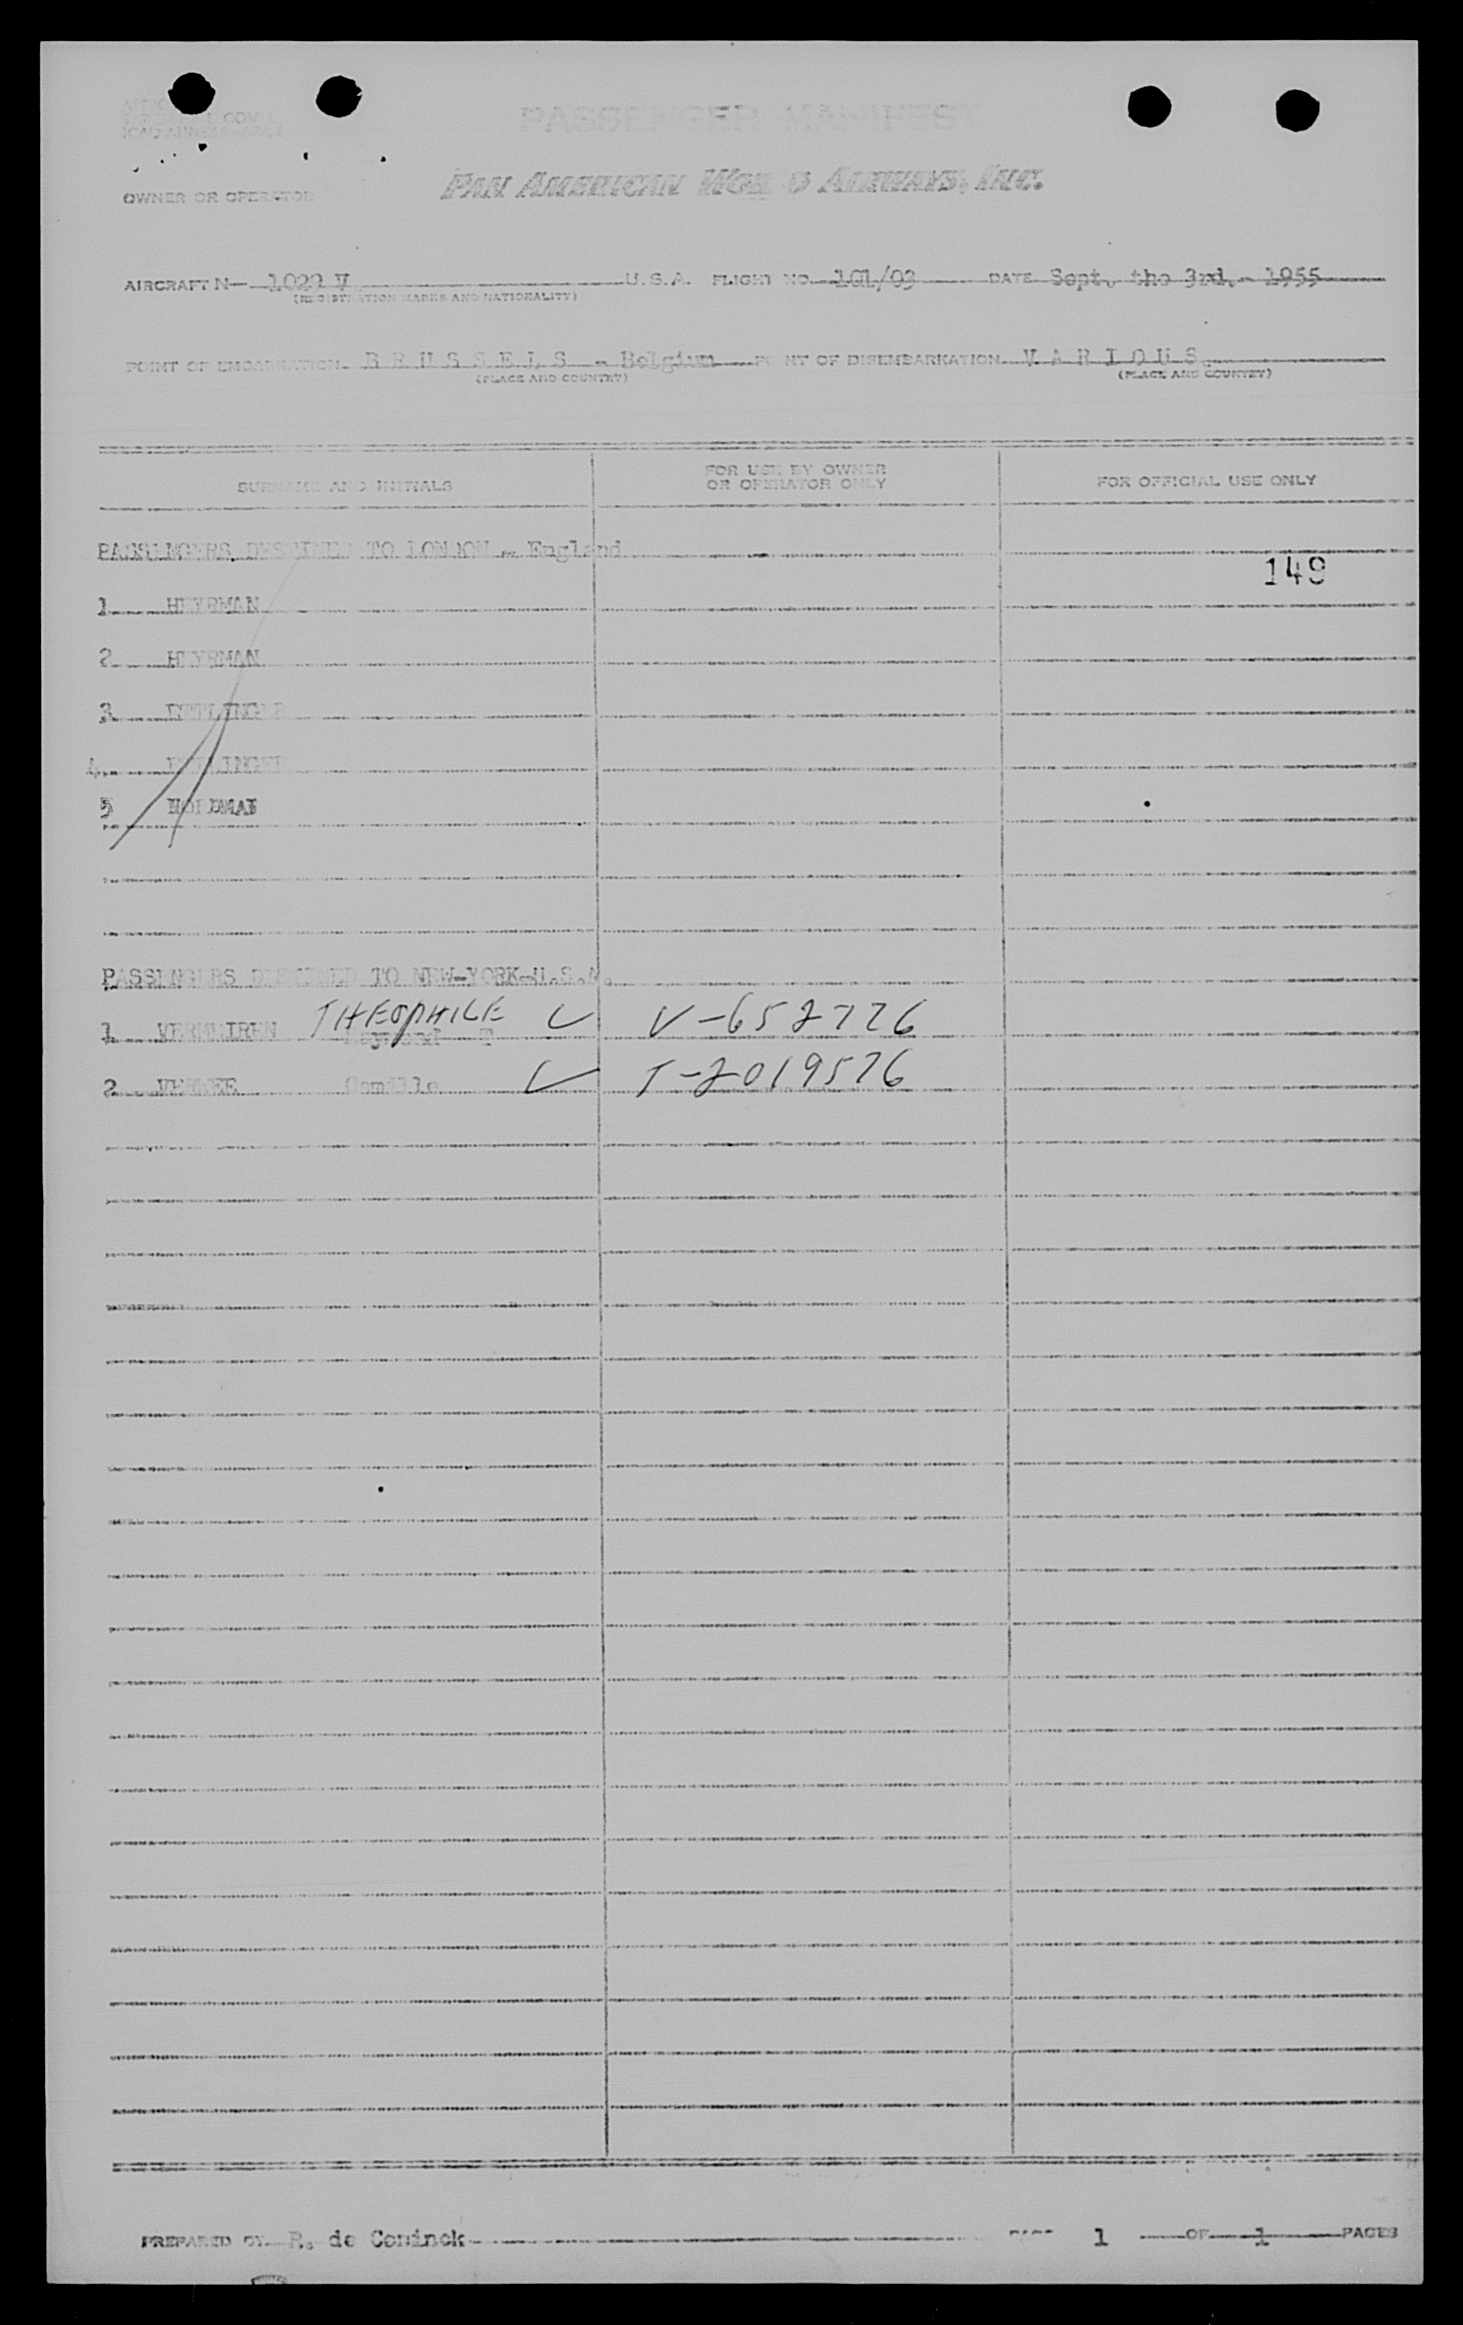 PASSENGER MANIFEST
PAN AMERICAN WORLD AIRWAYS, INC.
OWNER OR OPERATOR
AIRCRAFT N- 1022 V U.S.A. FLIGHT NO. 1GL/03 DATE Sept. the 3rd.- 1955
(REGISTRATION MARKS AND NATIONALITY)
POINT OF EMBARKATION B R U S S E L S - Belgium POINT OF DISEMBARKATION V A R I O U S.
(PLACE AND COUNTRY) (PLACE AND COUNTRY)
SURNAME AND INITIALS
FOR USE BY OWNER
OR OPERATOR ONLY
FOR OFFICIAL USE ONLY
PASSENGERS DESTINED TO LONDON - England
149
1 HEYRMAN
2 HEYRMAN
3
4.
5
PASSENGERS DESTINED TO NEW-YORK-U.S.A.
1 VERMEIREN THEOPHILE V-652726
2 Camille T-2019576
PREPARED BY R. de Coninck PAGE 1 OF 1 PAGES